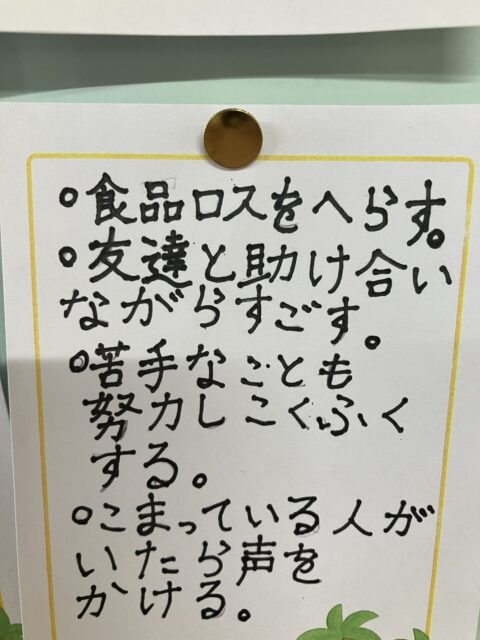 ○食品ロスをへらす。
○友達と助け合い
ながらすごす。
○苦手なことも
努力しこくふく
する。
○こまっている人が
いたら声を
かける。